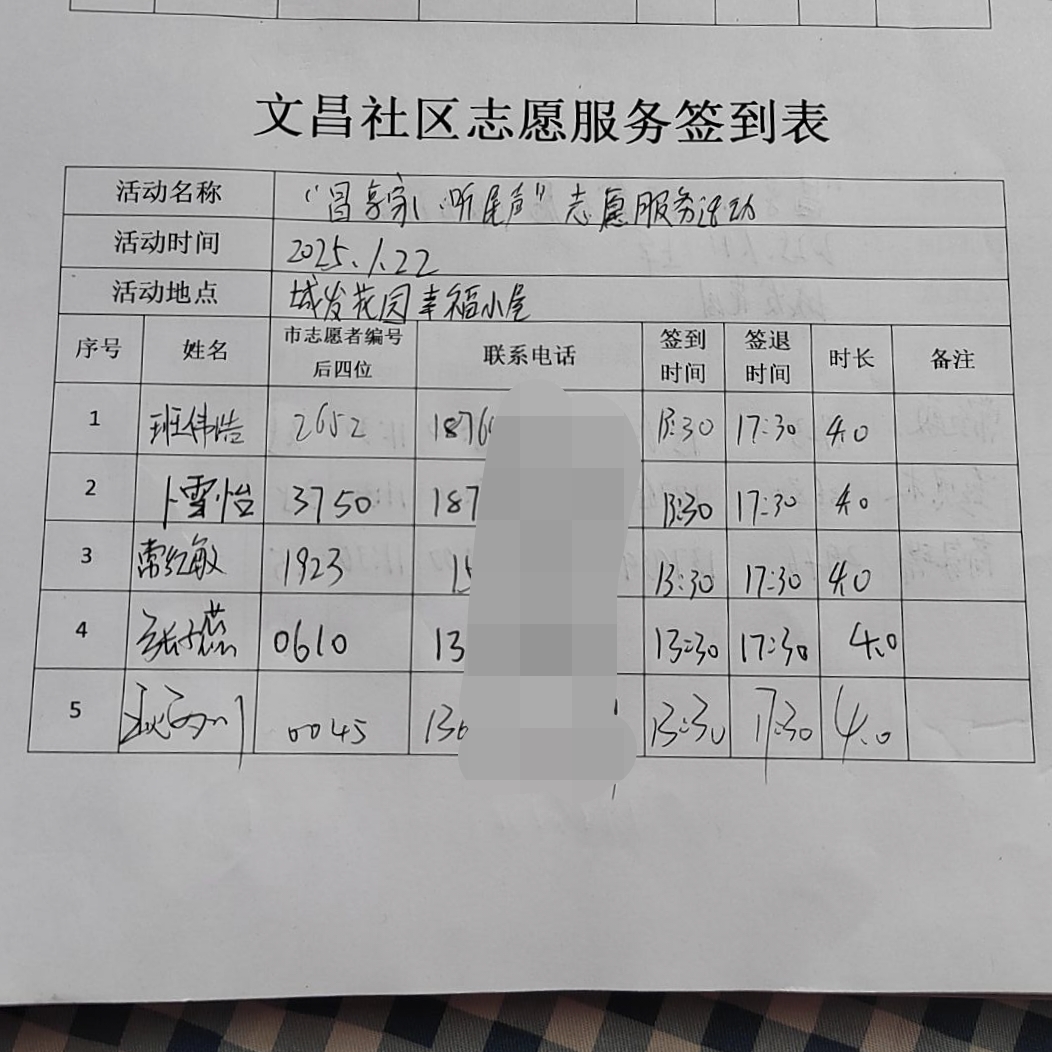 文昌社区志愿服务签到表
活动名称 “昌享家、听民声”志愿服务活动
活动时间 2025.1.22
活动地点 城发花园幸福小屋
序号 姓名 市志愿者编号后四位 联系电话 签到时间 签退时间 时长 备注
1 班伟浩 2652 1876 13:30 17:30 4.0
2 卜雪怡 3750 187 13:30 17:30 4.0
3 常红敏 1923 15 13:30 17:30 4.0
4 0610 13 13:30 17:30 4.0
5 0045 136 13:30 17:30 4.0